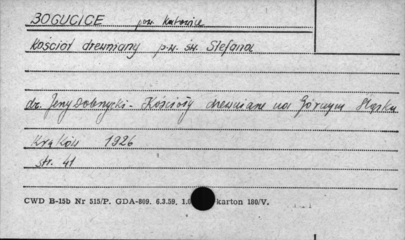 BOGUCICE pow. Katowice
Kościół drewniany p.w. św. Stefana
dr. Jerzy Dobrzycki - Kościoły drewniane na Górnym Śląsku
Kraków 1926
str. 41
CWD B-15b Nr 515/P. GDA-809. 6.3.59. 1.0 karton 180/V.